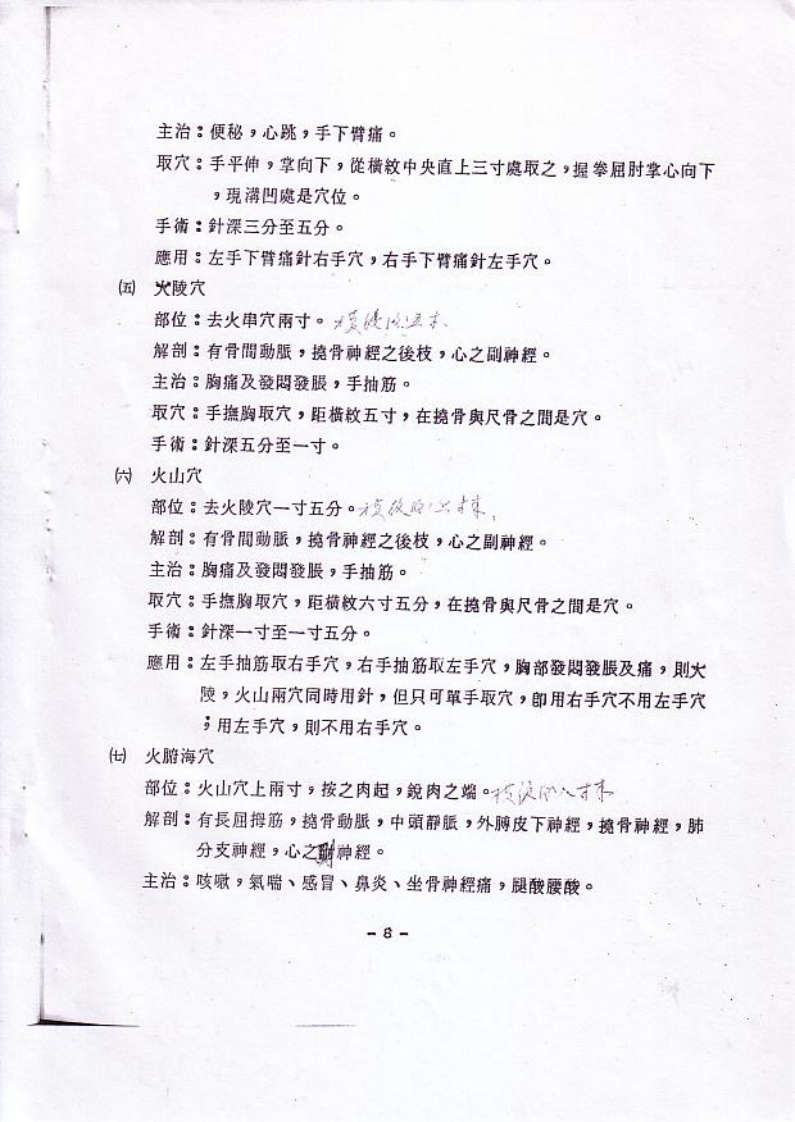 主治：便秘，心跳，手下臂痛。
取穴：手平伸，掌向下，從橫紋中央直上三寸處取之，握拳屈肘掌心向下
，現溝凹處是穴位。
手術：針深三分至五分。
應用：左手下臂痛針右手穴，右手下臂痛針左手穴。
㈤ 火陵穴
部位：去火串穴兩寸。
解剖：有骨間動脈，撓骨神經之後枝，心之副神經。
主治：胸痛及發悶發脹，手抽筋。
取穴：手撫胸取穴，距橫紋五寸，在撓骨與尺骨之間是穴。
手術：針深五分至一寸。
㈥ 火山穴
部位：去火陵穴一寸五分。
解剖：有骨間動脈，撓骨神經之後枝，心之副神經。
主治：胸痛及發悶發脹，手抽筋。
取穴：手撫胸取穴，距橫紋六寸五分，在撓骨與尺骨之間是穴。
手術：針深一寸至一寸五分。
應用：左手抽筋取右手穴，右手抽筋取左手穴，胸部發悶發脹及痛，則火
陵，火山兩穴同時用針，但只可單手取穴，卽用右手穴不用左手穴
；用左手穴，則不用右手穴。
㈦ 火腑海穴
部位：火山穴上兩寸，按之肉起，銳肉之端。
解剖：有長屈拇筋，撓骨動脈，中頭靜脈，外膊皮下神經，撓骨神經，肺
分支神經，心之副神經。
主治：咳嗽，氣喘、感冒、鼻炎、坐骨神經痛，腿酸腰酸。
- 8 -